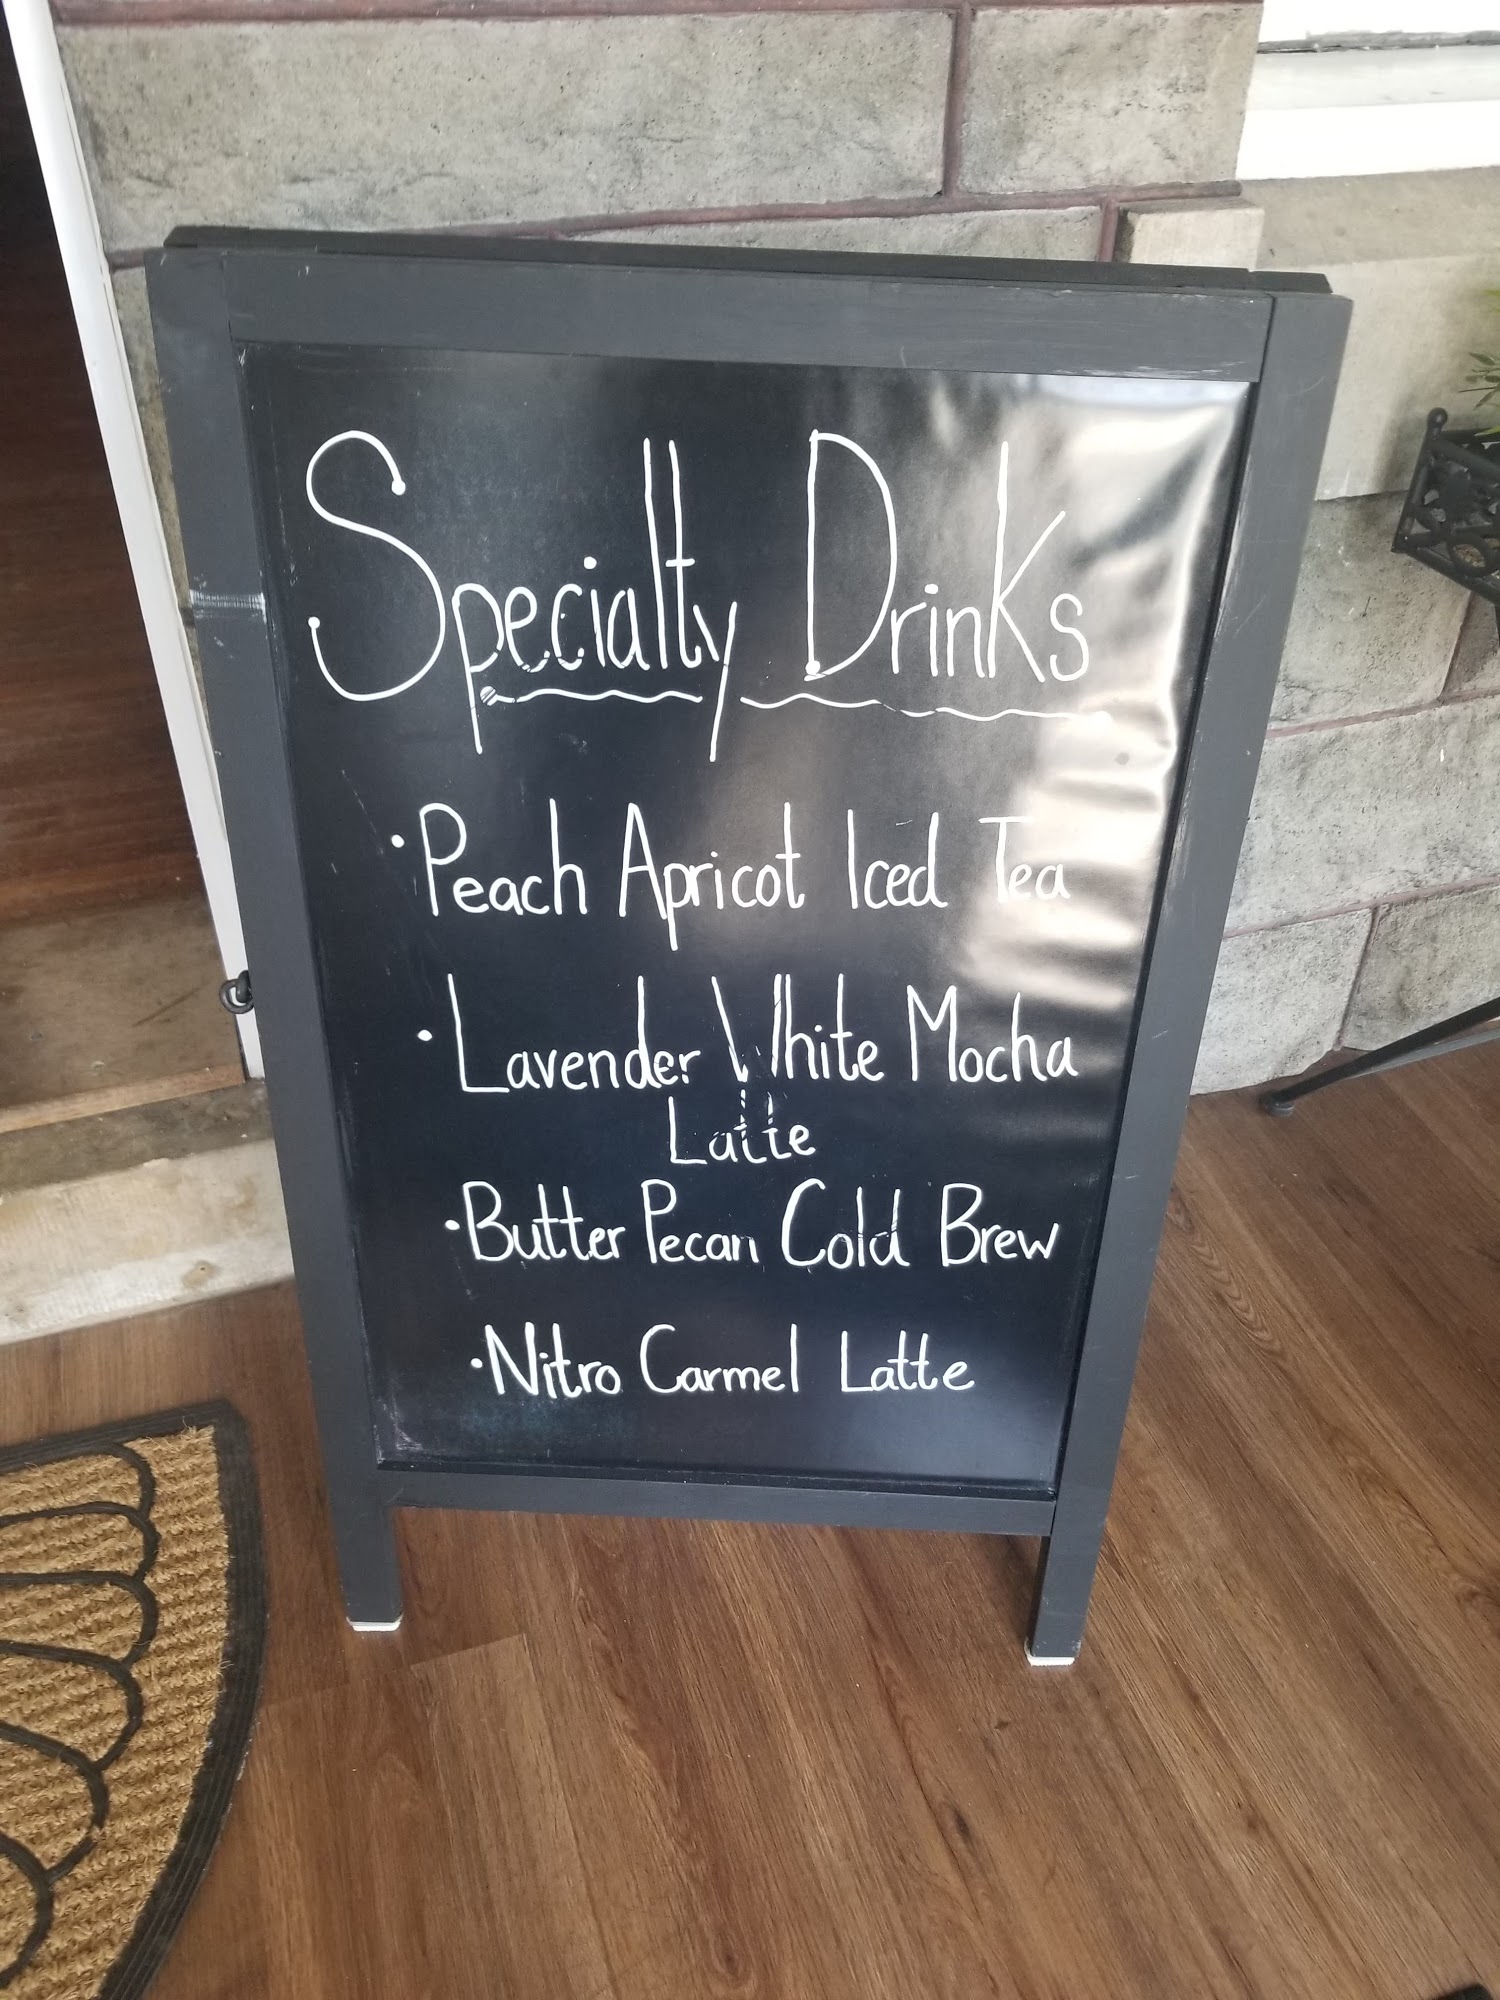 Specialty Drinks
• Peach Apricot Iced Tea
• Lavender White Mocha
Latte
• Butter Pecan Cold Brew
• Nitro Carmel Latte